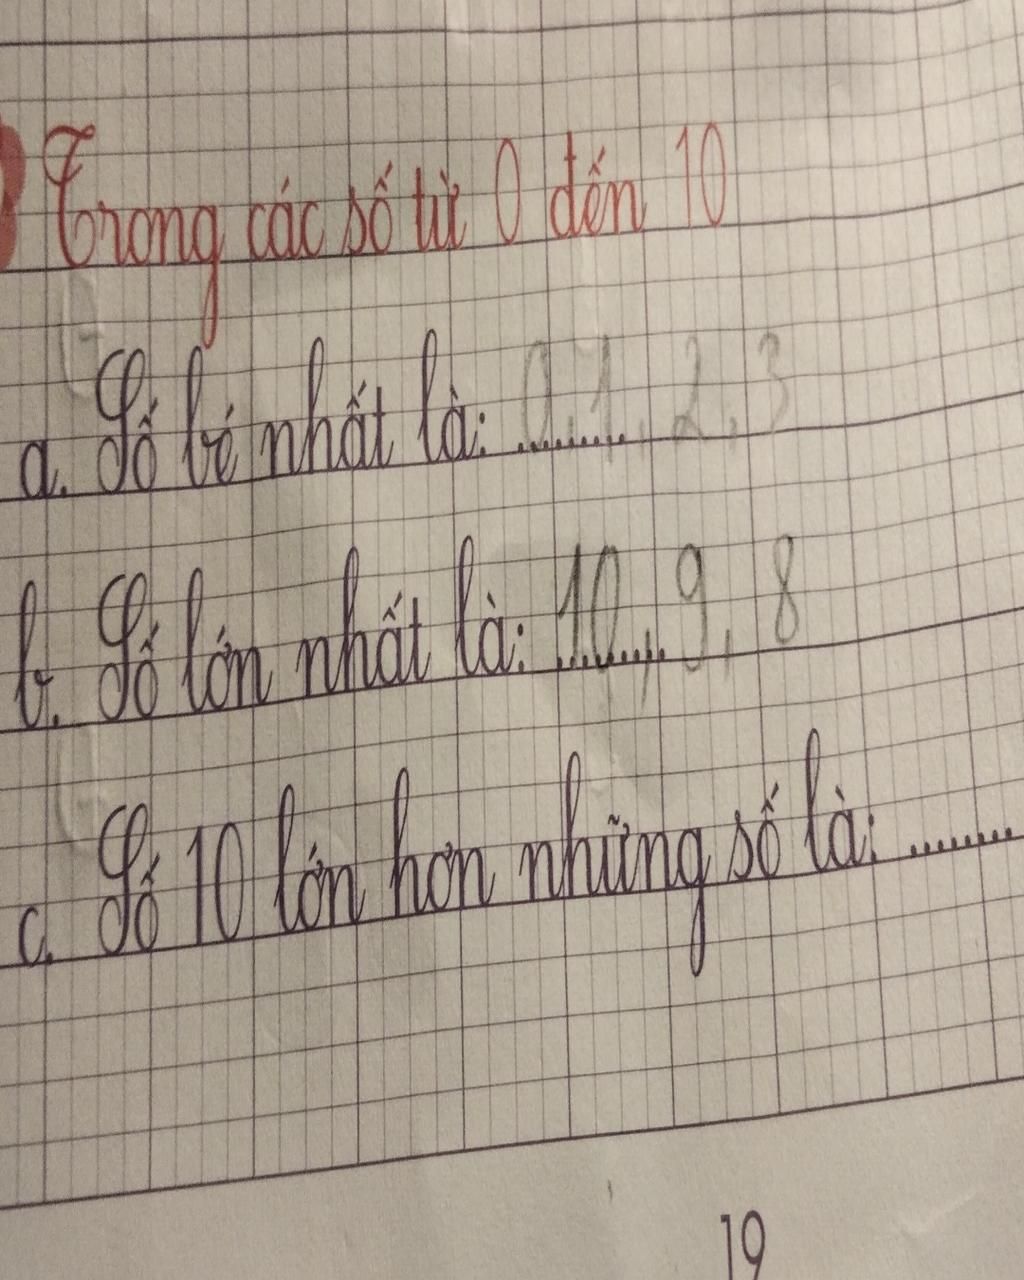 Trong các số từ 0 đến 10
a. Số bé nhất là: ......... 0, 1, 2, 3
b. Số lớn nhất là: ......... 10, 9, 8
c. Số 10 lớn hơn những số là: .........
19